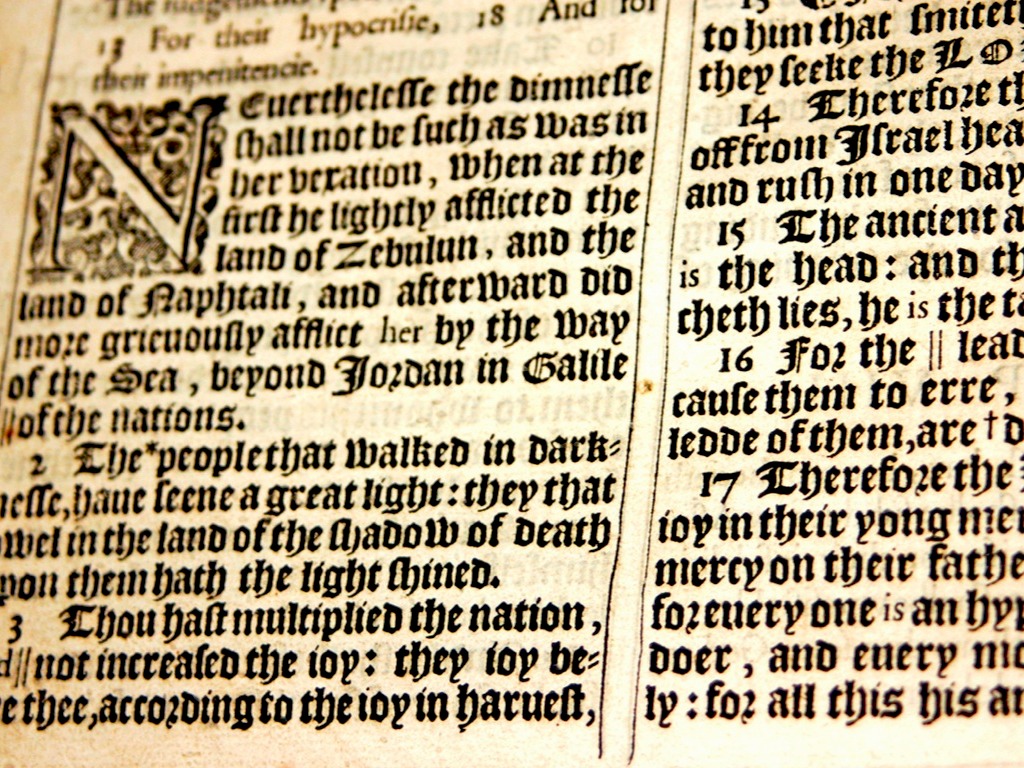 13 For their hypocrisie, 18 And for
their impenitencie.
NEuerthelesse the dimnesse
shall not be such as was in
her vexation, when at the
first he lightly afflicted the
land of Zebulun, and the
land of Naphtali, and afterward did
more grieuously afflict her by the way
of the Sea, beyond Jordan in Galile
||of the nations.
2 The*people that walked in dark-
nesse, haue seene a great light: they that
dwel in the land of the shadow of death
vpon them hath the light shined.
3 Thou hast multiplied the nation,
||not increased the ioy: they ioy be-
thee, according to the ioy in haruest,
to him that smitet
they seeke the LO
14 Therefore th
off from Israel hea
and rush in one day
15 The ancient a
is the head: and th
cheth lies, he is the ta
16 For the || lead
cause them to erre,
ledde of them, are †
17 Therefore the
ioy in their yong men
mercy on their fathe
for euery one is an hyp
doer, and euery mo
ly: for all this his an